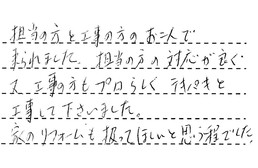 担当の方と工事の方のお二人で
来られました。担当の方の対応が良く
又、工事の方もプロらしくテキパキと
工事して下さいました。
家のリフォームも扱ってほしいと思う程でした。